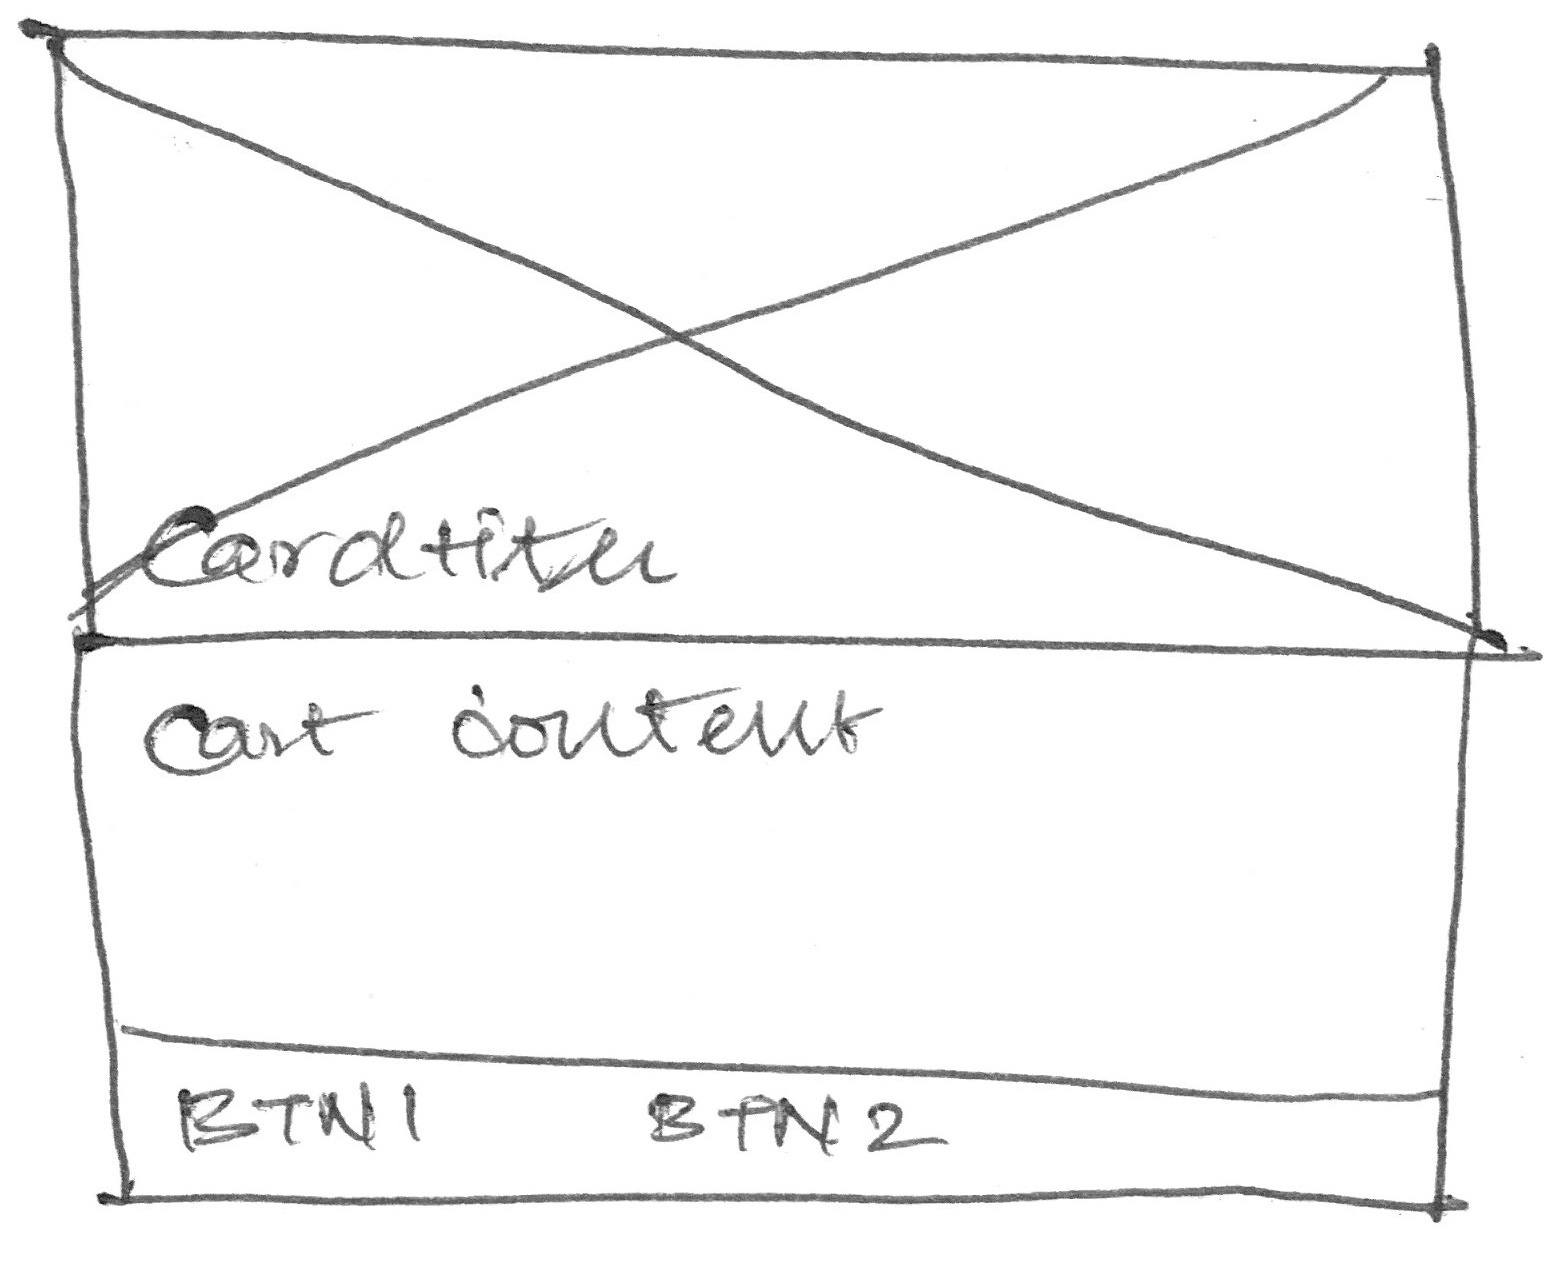 Card title
Cart content
BTN1 BTN2